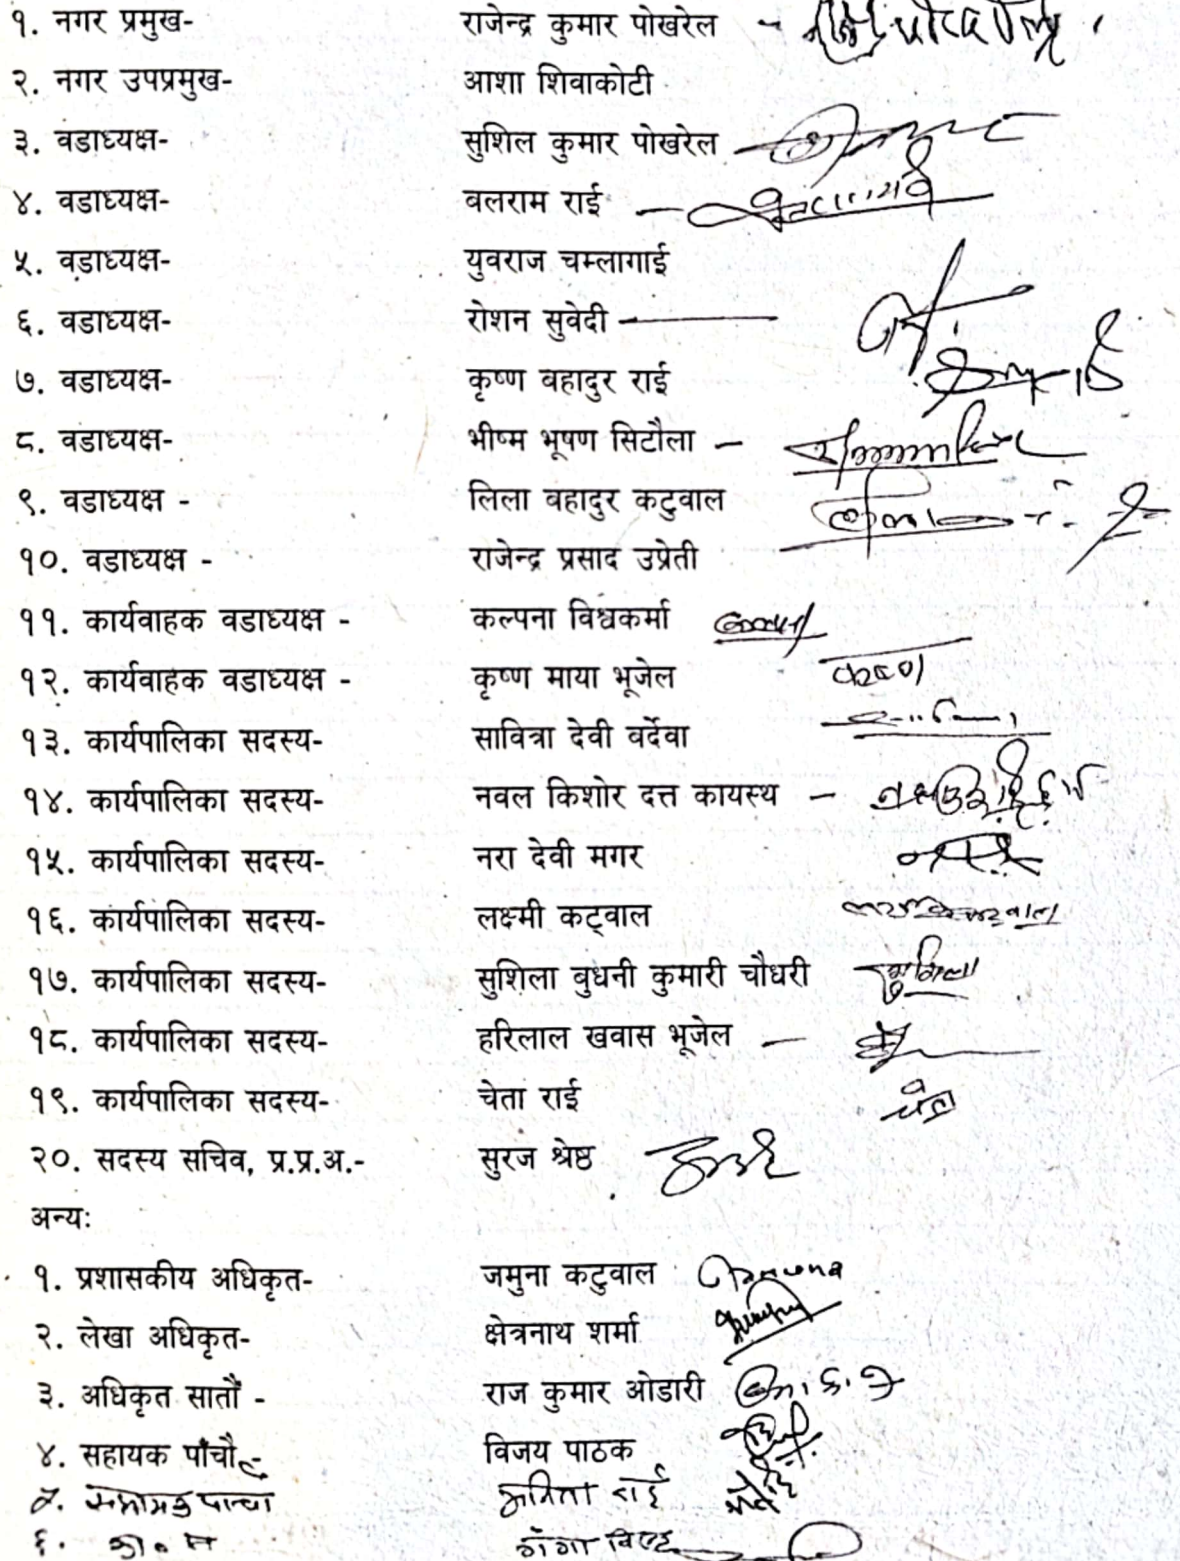 १. नगर प्रमुख- राजेन्द्र कुमार पोखरेल -
२. नगर उपप्रमुख- आशा शिवाकोटी
३. वडाध्यक्ष- सुशिल कुमार पोखरेल
४. वडाध्यक्ष- वलराम राई
५. वडाध्यक्ष- युवराज चम्लागाई
६. वडाध्यक्ष- रोशन सुवेदी
७. वडाध्यक्ष- कृष्ण वहादुर राई
८. वडाध्यक्ष- भीष्म भूषण सिटौला -
९. वडाध्यक्ष - लिला वहादुर कटुवाल
१०. वडाध्यक्ष - राजेन्द्र प्रसाद उप्रेती
११. कार्यवाहक वडाध्यक्ष - कल्पना विश्वकर्मा कल्पना
१२. कार्यवाहक वडाध्यक्ष - कृष्ण माया भूजेल
१३. कार्यपालिका सदस्य- सावित्रा देवी वर्देवा
१४. कार्यपालिका सदस्य- नवल किशोर दत्त कायस्थ -
१५. कार्यपालिका सदस्य- नरा देवी मगर
१६. कार्यपालिका सदस्य- लक्ष्मी कट्वाल
१७. कार्यपालिका सदस्य- सुशिला बुधनी कुमारी चौधरी सुशिला
१८. कार्यपालिका सदस्य- हरिलाल खवास भूजेल -
१९. कार्यपालिका सदस्य- चेता राई चेता
२०. सदस्य सचिव, प्र.प्र.अ.- सुरज श्रेष्ठ
अन्य:
१. प्रशासकीय अधिकृत- जमुना कटुवाल
२. लेखा अधिकृत- क्षेत्रनाथ शर्मा
३. अधिकृत सातौं - राज कुमार ओडारी
४. सहायक पाँचौ- विजय पाठक
राई
६. का. स